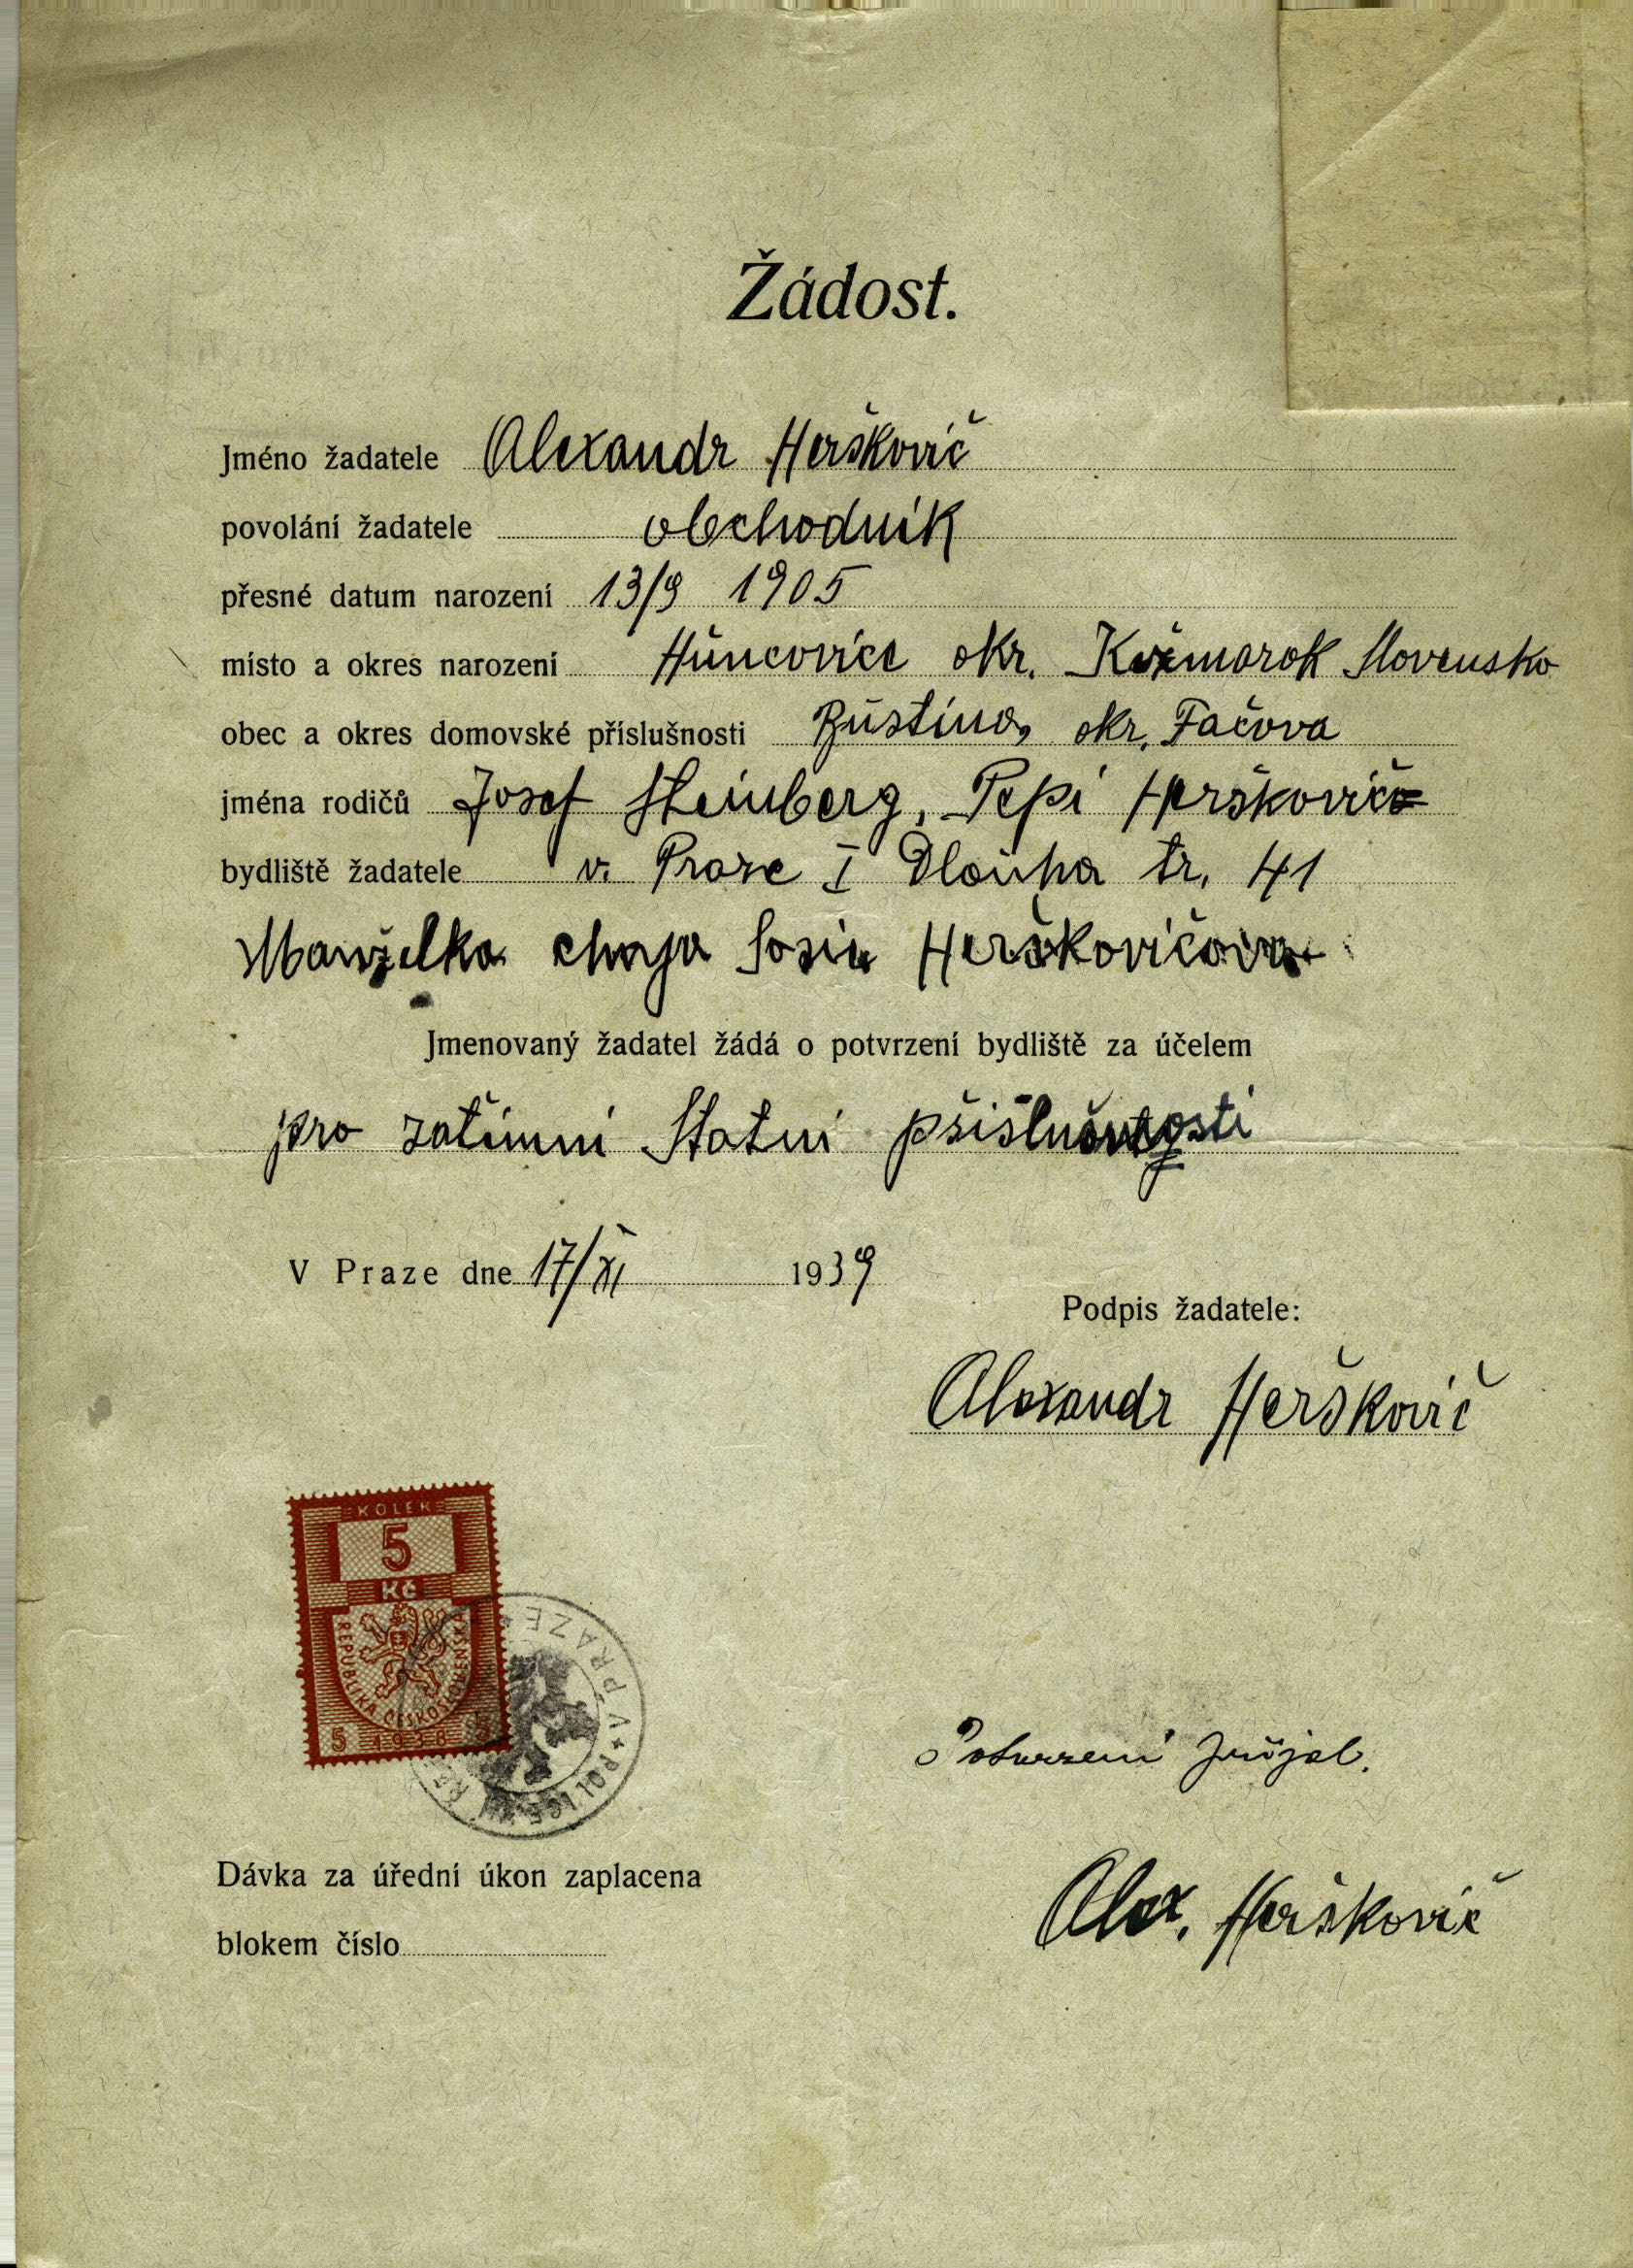 Žádost.
Jméno žadatele Alexandr Herškovič
povolání žadatele obchodnik
přesné datum narození 13/9 1905
místo a okres narození Hůncovice okr. Kežmarok Slovensko
obec a okres domovské příslušnosti Bůština, okr. Fačova
jména rodičů Josef Steinberg, Pepi Herškovič
bydliště žadatele v. Praze I Dloůha tr. 41
Manželka chaja Sosie Herškovičova
Jmenovaný žadatel žádá o potvrzení bydliště za účelem
pro zatimni Statni
V Praze dne 17/XI 1939
Podpis žadatele:
Alexandr Herškovič
KOLEK
5
Kč
REPUBLIKA ČESKOSLOVENSKÁ
5 1938 5
V PRAZE POLICE
Potvrzení přijal.
Alex. Herškovič
Dávka za úřední úkon zaplacena
blokem číslo